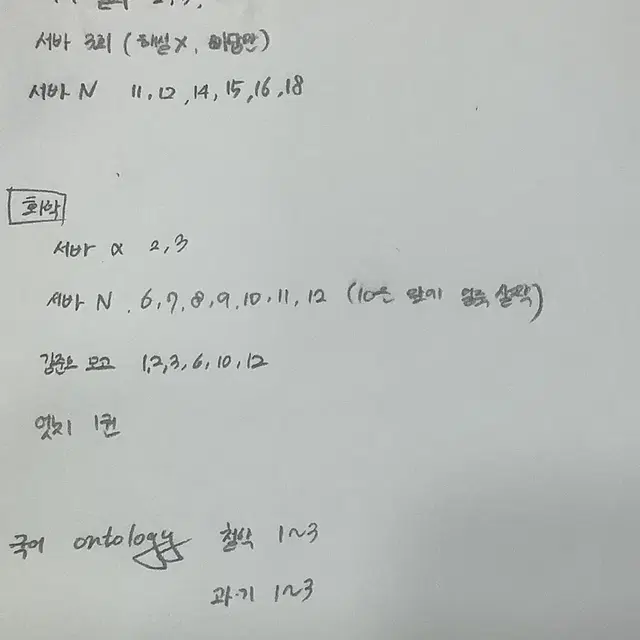 2, 3,
서바 3회 (해설X, 빠답만)
서바 N 11, 12, 14, 15, 16, 18
화학
서바 α 2, 3
서바 N. 6, 7, 8, 9, 10, 11, 12 (10은 앞에 얼룩 살짝)
김준모고 1, 2, 3, 6, 10, 12
엣지 1권
국어 ontology 철학 1~3
과·기 1~3